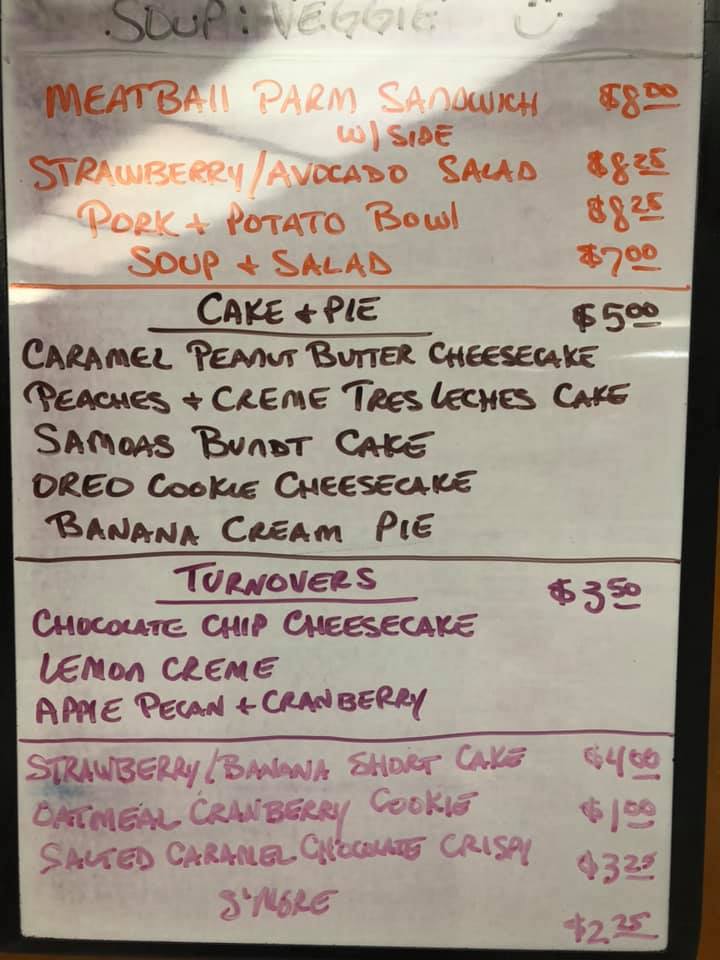 SOUP: VEGGIE
MEATBAll PARM SANDWICH $8.00
W/ SIDE
STRAWBERRY/AVOCADO SALAD $8.25
PORK + POTATO BOWl $8.25
SOUP + SALAD $7.00
CAKE + PIE $5.00
CARAMEL PEANUT BUTTER CHEESECAKE
PEACHES + CREME TRES LECHES CAKE
SAMOAS BUNDT CAKE
OREO COOKIE CHEESECAKE
BANANA CREAM PIE
TURNOVERS $3.50
CHOCOLATE CHIP CHEESECAKE
LEMON CREME
APPlE PECAN + CRANBERRY
STRAWBERRY/BANANA SHORT CAKE $4.00
OATMEAL CRANBERRY COOKIE $1.00
SALTED CARAMEL CHOCOLATE CRISPY $3.25
S'MORE $2.25